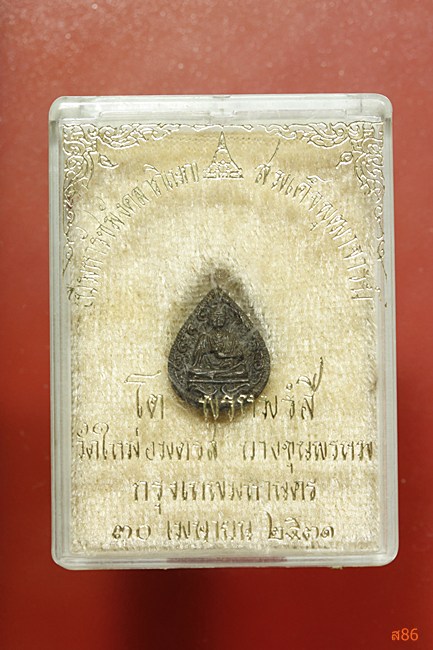 สมเด็จพุฒาจารย์
โต พรหมรังสี
วัดใหม่อมตรส บางขุนพรหม
กรุงเทพมหานคร
๓๐ เมษายน ๒๕๓๑
ส86